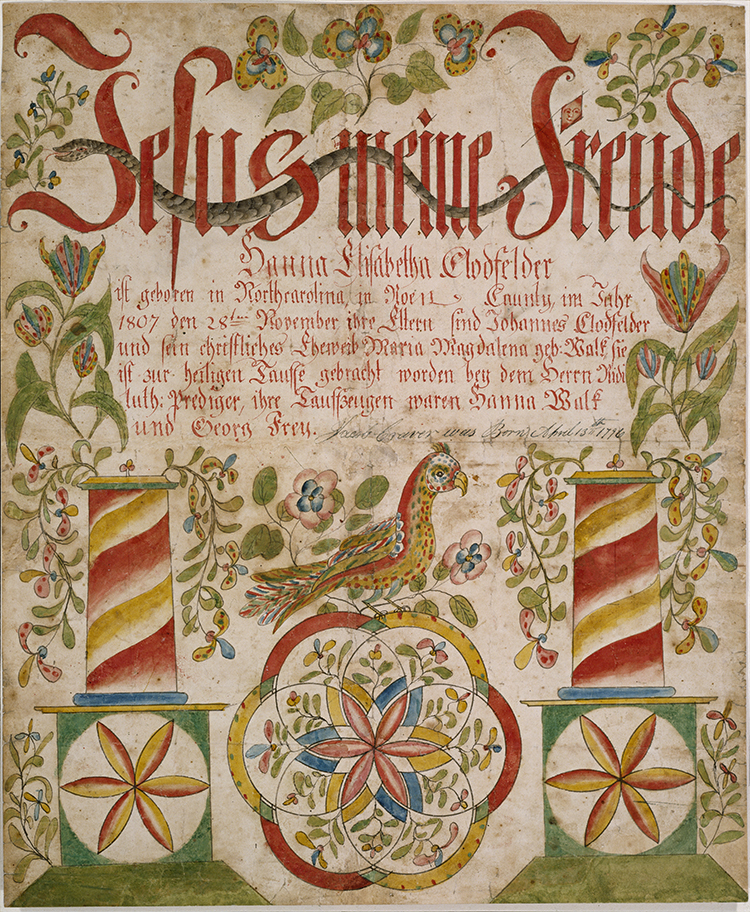 Jesus meine Freude
Hanna Elisabetha Clodfelder
ist geboren in Northcarolina, in Roën Caunty, im Jahr
1807 den 28ten November ihre Eltern sind Johannes Clodfelder
und sein christliches Eheweib Maria Magdalena geb: Walk sie
ist zur heiligen Taufse gebracht worden bey dem Herrn
luth: Prediger, ihre Taufszeugen waren Hanna Walk
und Georg Frey. Jacob Craver was Born April 15th 1776